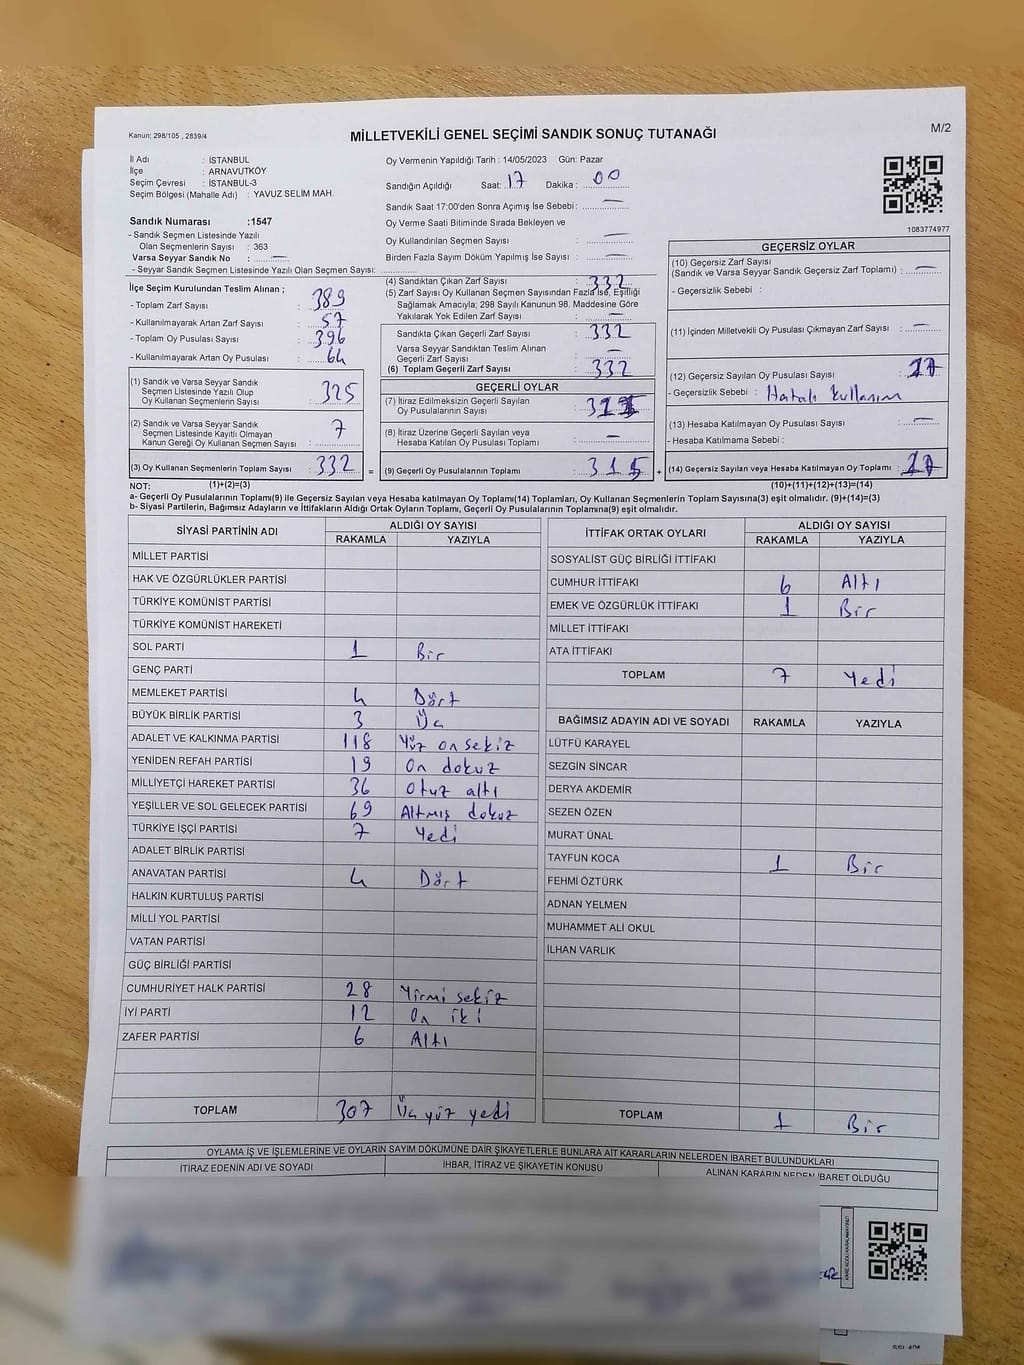 Kanun; 298/105 , 2839/4
MİLLETVEKİLİ GENEL SEÇİMİ SANDIK SONUÇ TUTANAĞI
M/2
İl Adı : İSTANBUL
İlçe : ARNAVUTKÖY
Seçim Çevresi : İSTANBUL-3
Seçim Bölgesi (Mahalle Adı) : YAVUZ SELİM MAH.
Sandık Numarası :1547
- Sandık Seçmen Listesinde Yazılı
Olan Seçmenlerin Sayısı : 363
Varsa Seyyar Sandık No : —
- Seyyar Sandık Seçmen Listesinde Yazılı Olan Seçmen Sayısı:
Oy Vermenin Yapıldığı Tarih : 14/05/2023 Gün: Pazar
Sandığın Açıldığı Saat: 17 Dakika : 00
Sandık Saat 17:00'den Sonra Açımış İse Sebebi : —
Oy Verme Saati Bitiminde Sırada Bekleyen ve
Oy Kullandırılan Seçmen Sayısı —
Birden Fazla Sayım Döküm Yapılmış İse Sayısı : —
1083774977
İlçe Seçim Kurulundan Teslim Alınan ;
- Toplam Zarf Sayısı : 389
- Kullanılmayarak Artan Zarf Sayısı : 57
- Toplam Oy Pusulası Sayısı : 396
- Kullanılmayarak Artan Oy Pusulası : 64
(1) Sandık ve Varsa Seyyar Sandık
Seçmen Listesinde Yazılı Olup
Oy Kullanan Seçmenlerin Sayısı : 325
(2) Sandık ve Varsa Seyyar Sandık
Seçmen Listesinde Kayıtlı Olmayan
Kanun Gereği Oy Kullanan Seçmen Sayısı : 7
(3) Oy Kullanan Seçmenlerin Toplam Sayısı : 332
(1)+(2)=(3)
(4) Sandıktan Çıkan Zarf Sayısı : 332
(5) Zarf Sayısı Oy Kullanan Seçmen Sayısından Fazla İse, Eşitliği
Sağlamak Amacıyla; 298 Sayılı Kanunun 98. Maddesine Göre
Yakılarak Yok Edilen Zarf Sayısı : —
Sandıkta Çıkan Geçerli Zarf Sayısı : 332
Varsa Seyyar Sandıktan Teslim Alınan
Geçerli Zarf Sayısı : —
(6) Toplam Geçerli Zarf Sayısı : 332
GEÇERLİ OYLAR
(7) İtiraz Edilmeksizin Geçerli Sayılan
Oy Pusulalarının Sayısı :
(8) İtiraz Üzerine Geçerli Sayılan veya
Hesaba Katılan Oy Pusulası Toplamı : —
= (9) Geçerli Oy Pusulalarının Toplamı : 315 +
GEÇERSİZ OYLAR
(10) Geçersiz Zarf Sayısı
(Sandık ve Varsa Seyyar Sandık Geçersiz Zarf Toplamı) : —
- Geçersizlik Sebebi :
(11) İçinden Milletvekili Oy Pusulası Çıkmayan Zarf Sayısı : —
(12) Geçersiz Sayılan Oy Pusulası Sayısı : 17
- Geçersizlik Sebebi : Hatalı kullanım
(13) Hesaba Katılmayan Oy Pusulası Sayısı : —
- Hesaba Katılmama Sebebi :
(14) Geçersiz Sayılan veya Hesaba Katılmayan Oy Toplamı : 17
(10)+(11)+(12)+(13)=(14)
NOT:
a- Geçerli Oy Pusulalarının Toplamı(9) ile Geçersiz Sayılan veya Hesaba katılmayan Oy Toplamı(14) Toplamları, Oy Kullanan Seçmenlerin Toplam Sayısına(3) eşit olmalıdır. (9)+(14)=(3)
b- Siyasi Partilerin, Bağımsız Adayların ve İttifakların Aldığı Ortak Oyların Toplamı, Geçerli Oy Pusulalarının Toplamına(9) eşit olmalıdır.
SİYASİ PARTİNİN ADI ALDIĞI OY SAYISI
RAKAMLA YAZIYLA
MİLLET PARTİSİ
HAK VE ÖZGÜRLÜKLER PARTİSİ
TÜRKİYE KOMÜNİST PARTİSİ
TÜRKİYE KOMÜNİST HAREKETİ
SOL PARTİ 1 Bir
GENÇ PARTİ
MEMLEKET PARTİSİ 4 Dört
BÜYÜK BİRLİK PARTİSİ 3 Üç
ADALET VE KALKINMA PARTİSİ 118 Yüz on sekiz
YENİDEN REFAH PARTİSİ 19 On dokuz
MİLLİYETÇİ HAREKET PARTİSİ 36 Otuz altı
YEŞİLLER VE SOL GELECEK PARTİSİ 69 Altmış dokuz
TÜRKİYE İŞÇİ PARTİSİ 7 Yedi
ADALET BİRLİK PARTİSİ
ANAVATAN PARTİSİ 4 Dört
HALKIN KURTULUŞ PARTİSİ
MİLLİ YOL PARTİSİ
VATAN PARTİSİ
GÜÇ BİRLİĞİ PARTİSİ
CUMHURİYET HALK PARTİSİ 28 Yirmi sekiz
İYİ PARTİ 12 On iki
ZAFER PARTİSİ 6 Altı
TOPLAM 307 Üç yüz yedi
İTTİFAK ORTAK OYLARI ALDIĞI OY SAYISI
RAKAMLA YAZIYLA
SOSYALİST GÜÇ BİRLİĞİ İTTİFAKI
CUMHUR İTTİFAKI 6 Altı
EMEK VE ÖZGÜRLÜK İTTİFAKI 1 Bir
MİLLET İTTİFAKI
ATA İTTİFAKI
TOPLAM 7 Yedi
BAĞIMSIZ ADAYIN ADI VE SOYADI RAKAMLA YAZIYLA
LÜTFÜ KARAYEL
SEZGİN SİNCAR
DERYA AKDEMİR
SEZEN ÖZEN
MURAT ÜNAL
TAYFUN KOCA 1 Bir
FEHMİ ÖZTÜRK
ADNAN YELMEN
MUHAMMET ALİ OKUL
İLHAN VARLIK
TOPLAM 1 Bir
OYLAMA İŞ VE İŞLEMLERİNE VE OYLARIN SAYIM DÖKÜMÜNE DAİR ŞİKAYETLERLE BUNLARA AİT KARARLARIN NELERDEN İBARET BULUNDUKLARI
İTİRAZ EDENİN ADI VE SOYADI İHBAR, İTİRAZ VE ŞİKAYETİN KONUSU ALINAN KARARIN NEDEN İBARET OLDUĞU